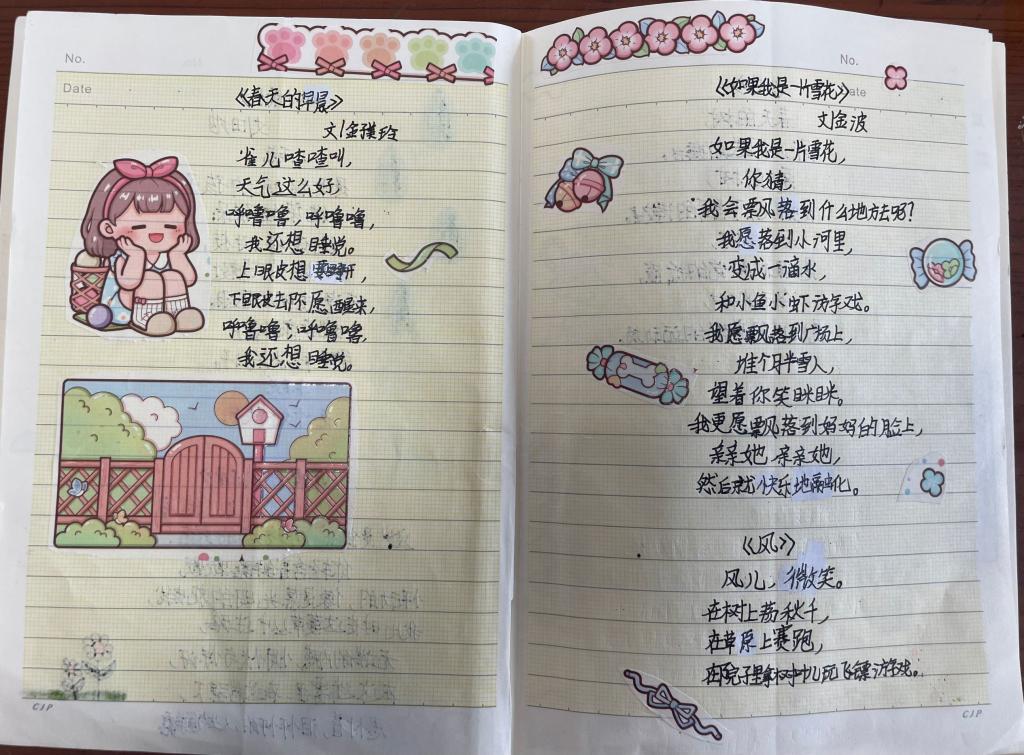 No.
Date
《春天的早晨》
文/金瑛
雀儿喳喳叫,
天气这么好,
呼噜噜,呼噜噜,
我还想睡觉。
上眼皮想要睁开,
下眼皮去不愿醒来,
呼噜噜,呼噜噜,
我还想睡觉。
CJP
No.
ate
《如果我是一片雪花》
文/金波
如果我是一片雪花,
你猜,
我会飘落到什么地方呢?
我愿落到小河里,
变成一滴水,
和小鱼小虾游戏。
我愿飘落到广场上,
堆个胖雪人,
望着你笑眯眯。
我更愿飘落到妈妈的脸上,
亲亲她,亲亲她,
然后就快乐地融化。
《风》
风儿,微笑。
在树上荡秋千,
在草原上赛跑,
在院子里拿树叶儿玩飞镖游戏。
CJP